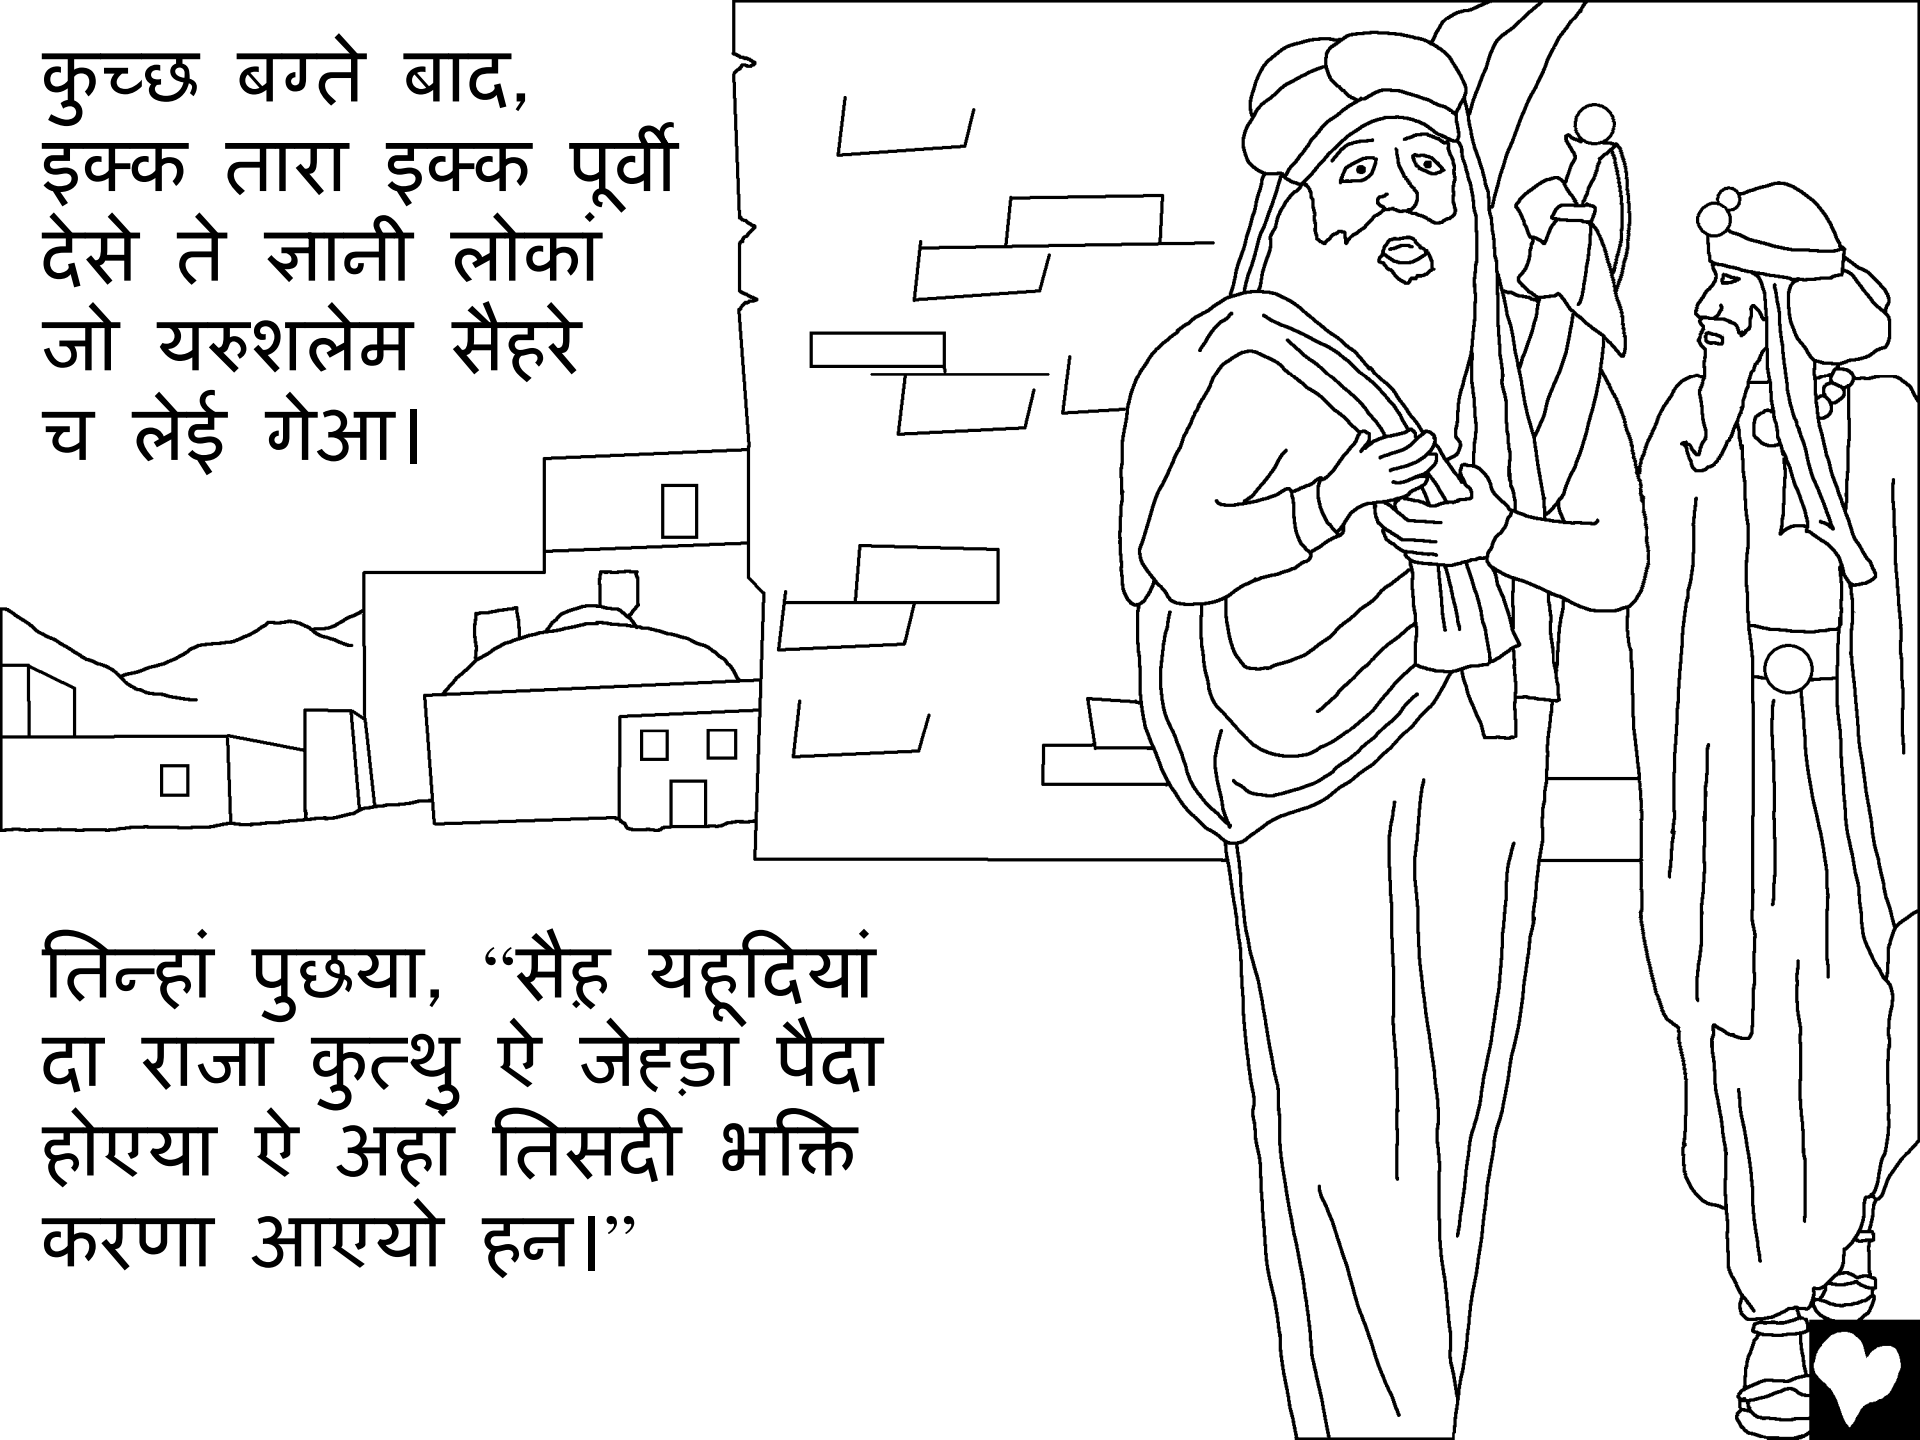 कुच्छ बग्ते बाद,
इक्क तारा इक्क पूर्वी
देसे ते ज्ञानी लोकां
जो यरुशलेम सैहरे
च लेई गेआ।
तिन्हां पुछया, “सैह़ यहूदियां
दा राजा कुत्थु ऐ जेह्ड़ा पैदा
होएया ऐ अहां तिसदी भक्ति
करणा आएयो हन।”